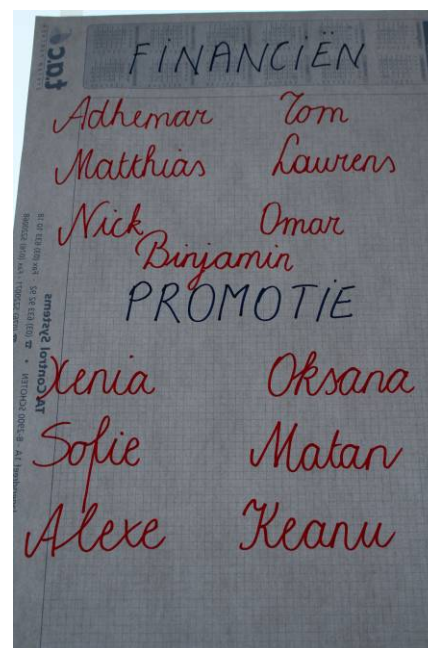 FINANCIËN
Adhemar Tom
Matthias Laurens
Nick Omar
Binjamin
PROMOTIE
Xenia Oksana
Sofie Matan
Alexe Keanu
t.a.c
TAControl Systems